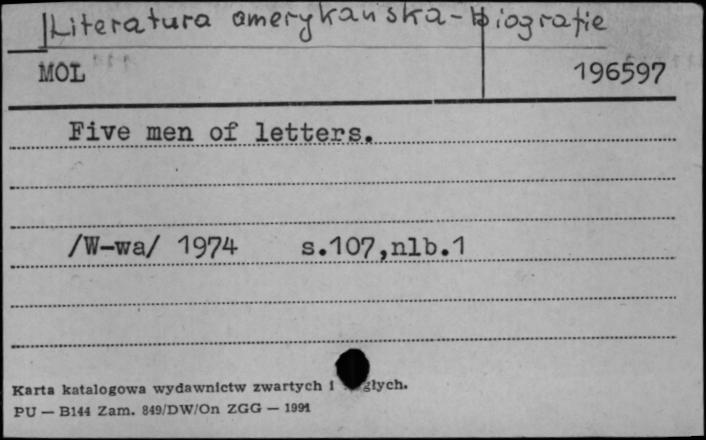 Literatura amerykańska-biografie
MOL 196597
Five men of letters.
/W-wa/ 1974 s.107,nlb.1
Karta katalogowa wydawnictw zwartych i głych.
PU — B144 Zam. 849/DW/On ZGG — 1991